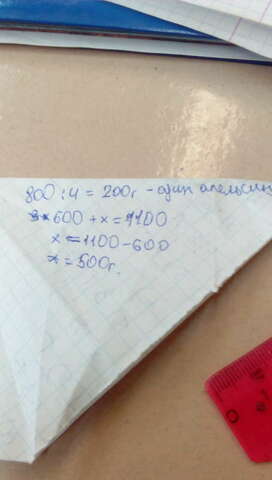 800 : 4 = 200г - один апельсин
600 + x = 1100
x = 1100 - 600
x = 500г.